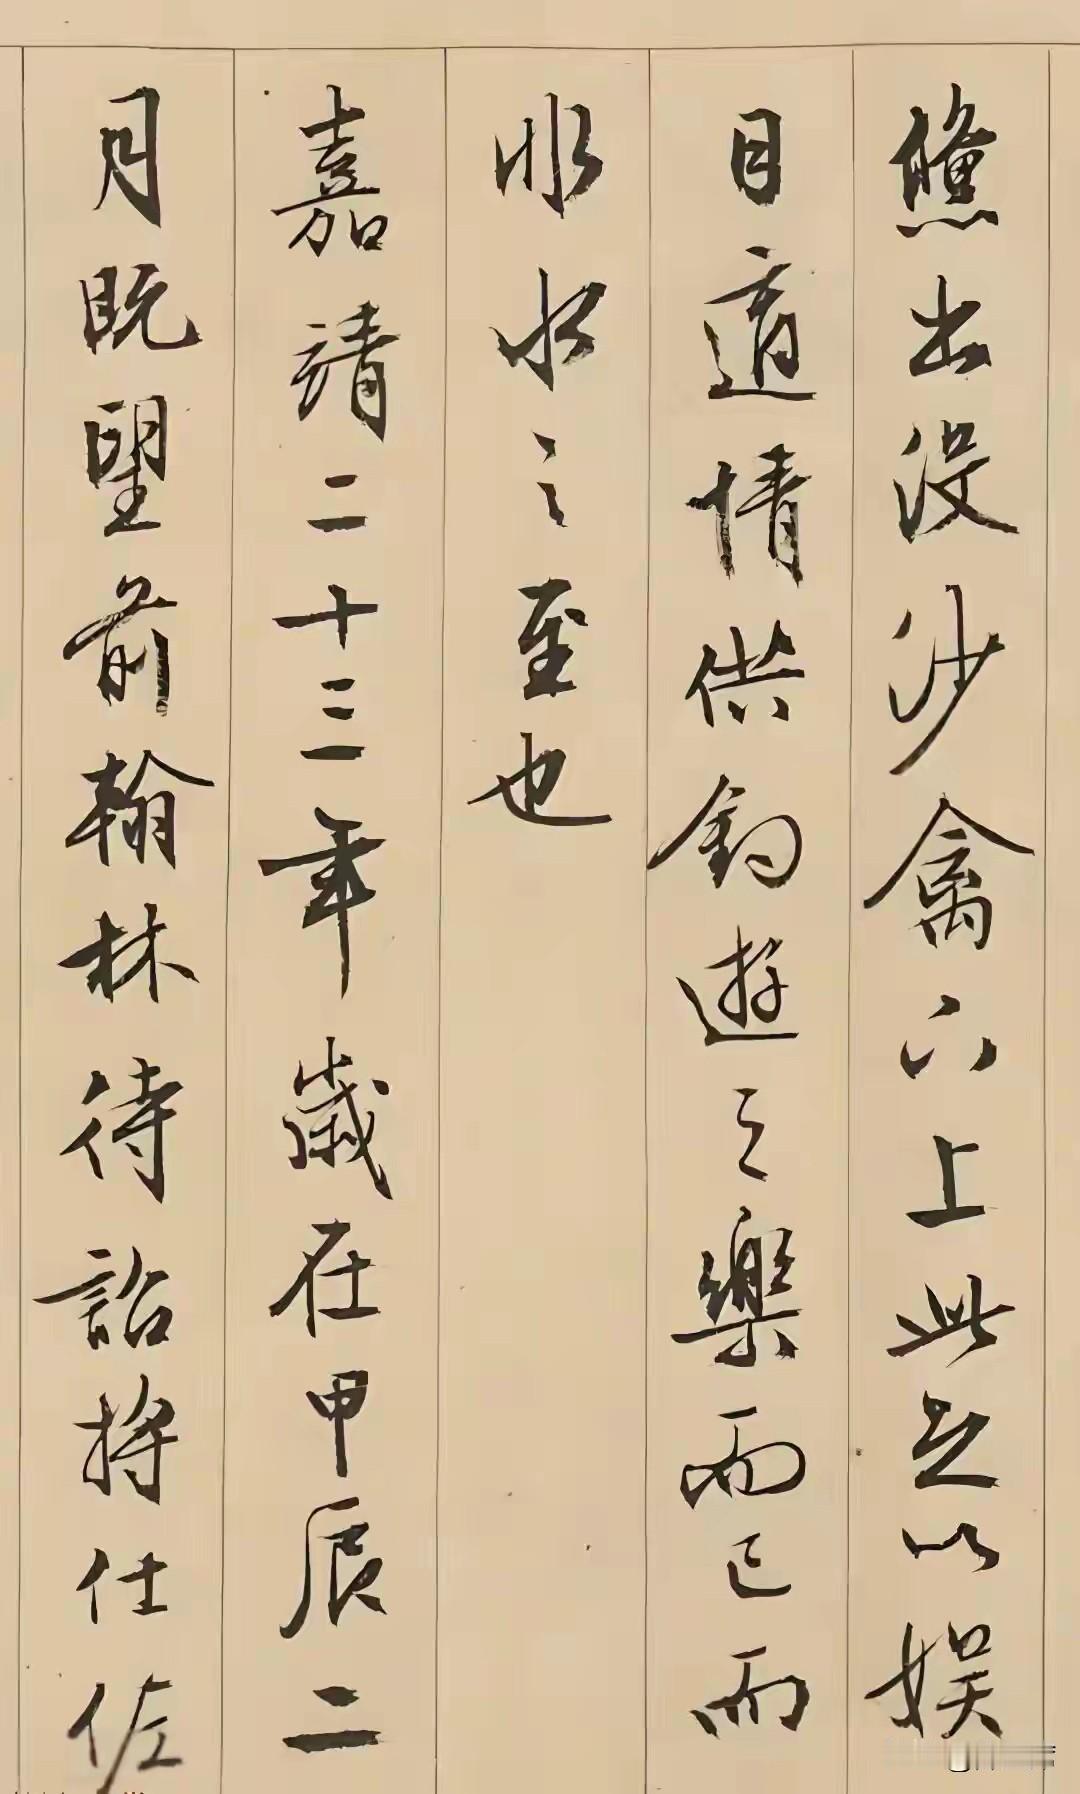 鯈出没沙禽六上此足以娱
目適情供釣遊之樂而已而
非水之至也
嘉靖二十三年歲在甲辰二
月既望前翰林待詔將仕佐